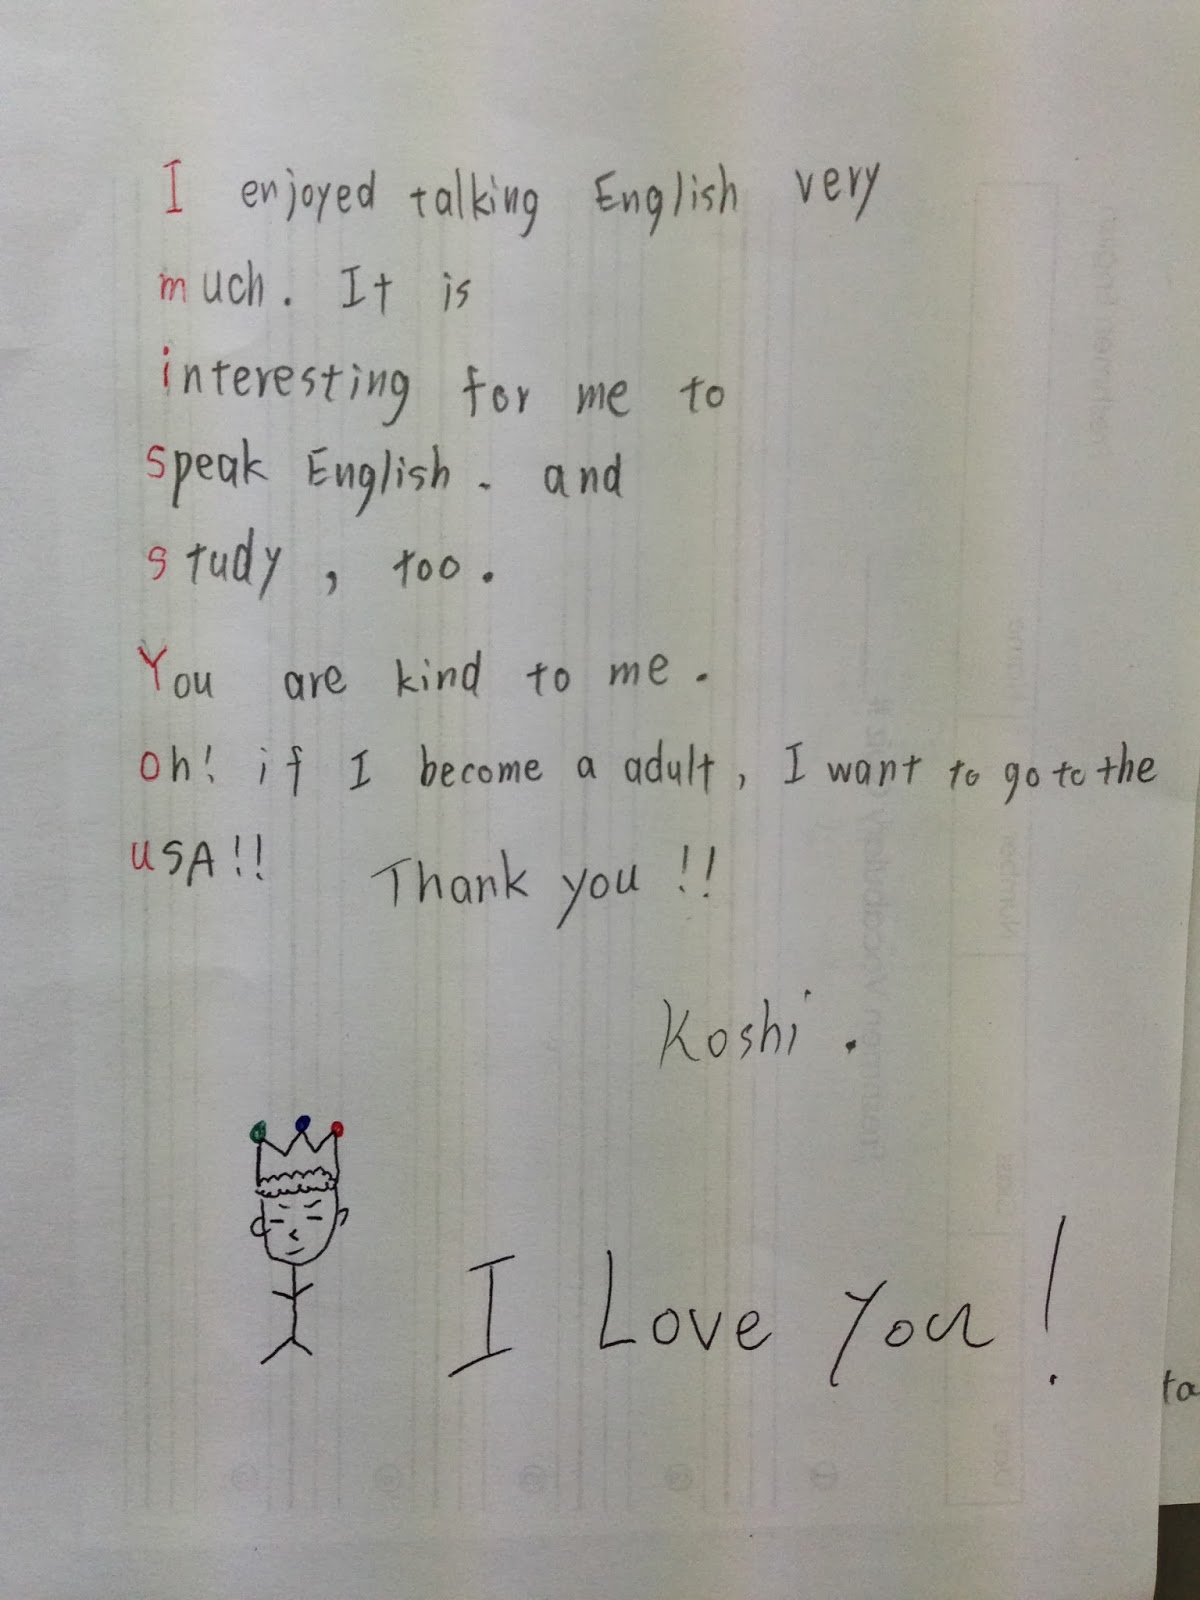 I enjoyed talking English very
much. It is
interesting for me to
speak English. and
study, too.
You are kind to me.
oh! if I become a adult, I want to go to the
uSA!! Thank you!!
Koshi.
I Love You!
ta